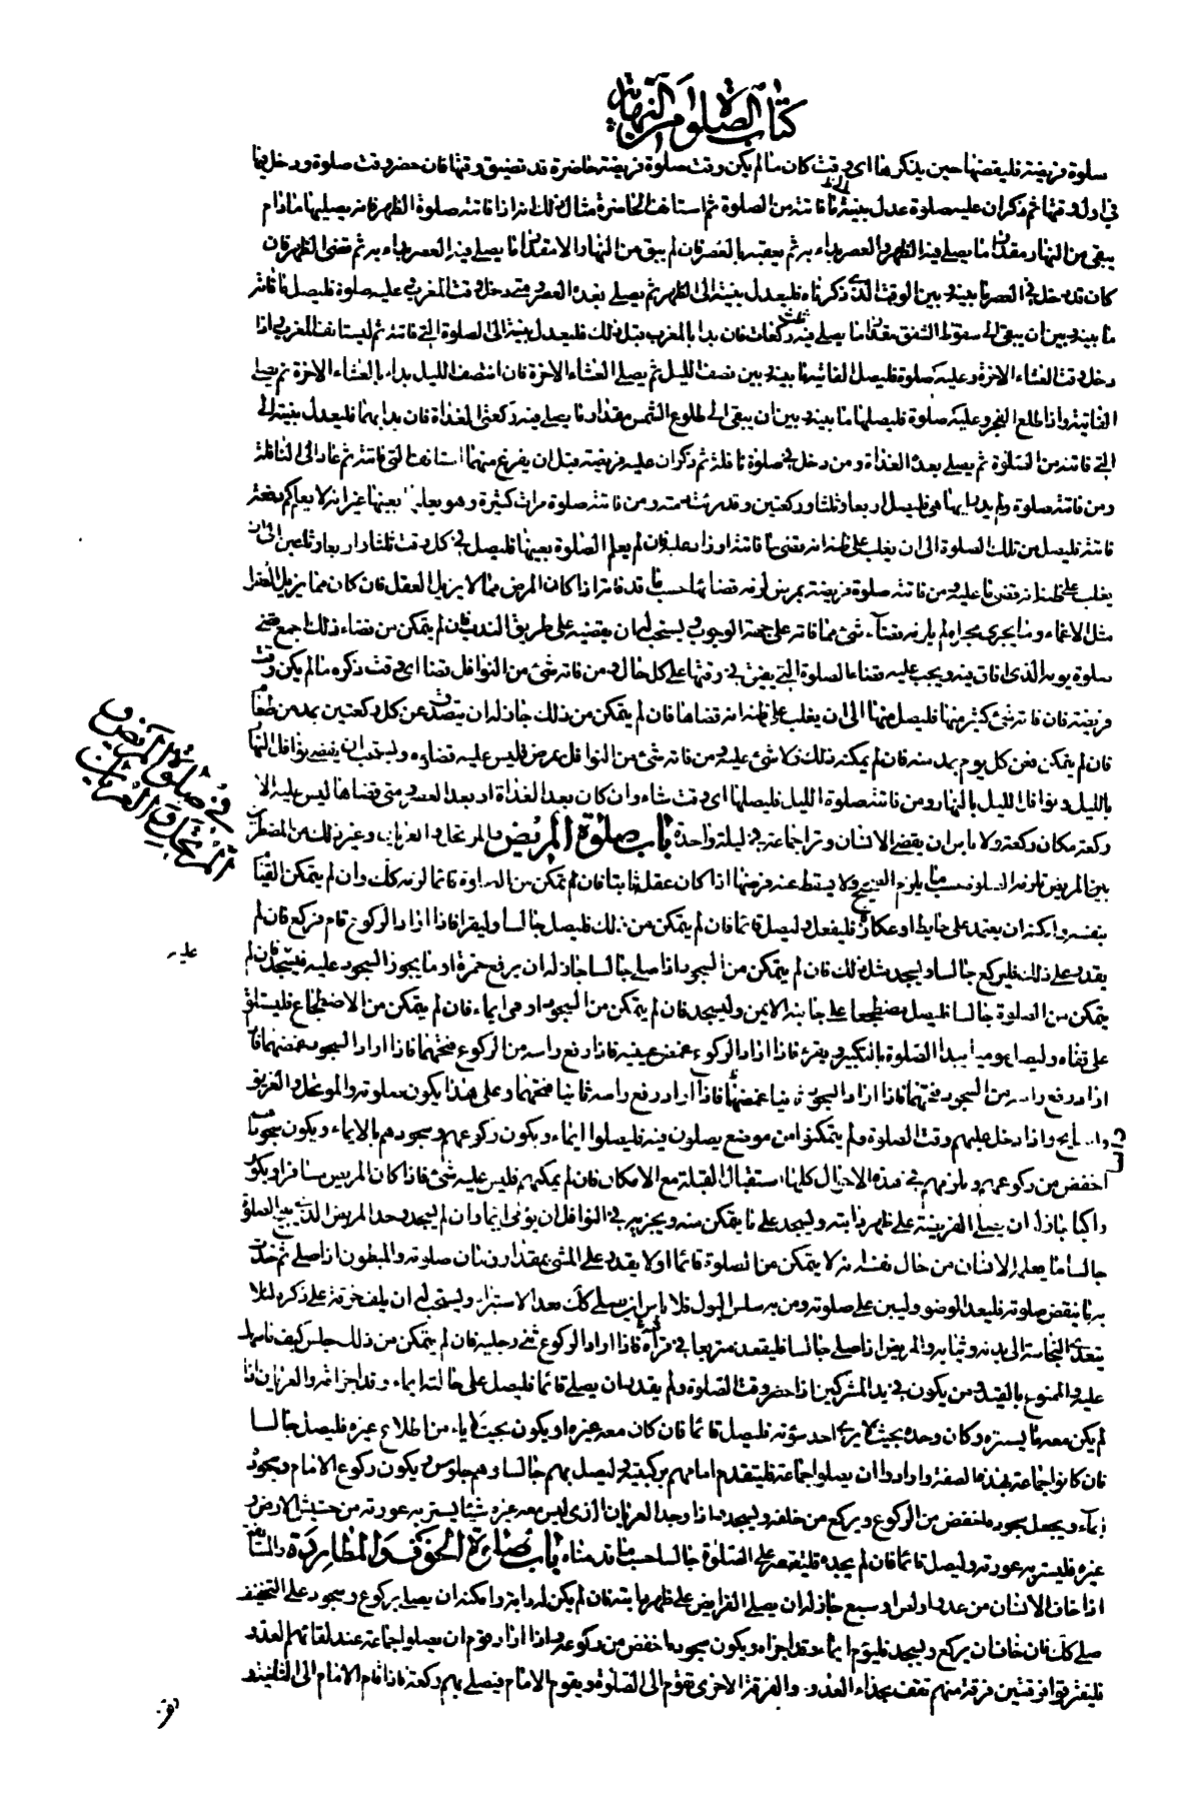 كتاب الصلوة من النهاية
صلوة فريضة فليقضها حين يذكرها اى وقت كان ما لم يكن وقت صلوة فريضة حاضرة قد تضيق وقتها فان حضر وقت صلوة ودخل فيها
فى اول وقتها ثم ذكر ان عليه صلوة عدل بنيته الى ما فاتته من الصلوة ثم استانف الحاضرة مثال ذلك انه اذا فاتته صلوة الظهر فانه يصليها ما دام
يبقى من النهار مقدار ما يصلى فيه الظهر والعصر يبداء به ثم يعقبه بالعصر فان لم يبق من النهار الا مقدار ما يصلى فيه العصر بداء به ثم قضى الظهر فان
كان قد دخل فى العصر ما بينه وبين الوقت الذى ذكرناه فليعدل بنيته الى الظهر ثم يصلى بعده العصر ومتى دخل وقت المغرب وعليه صلوة فليصل ما فاته
ما بينه وبين ان يبقى الى سقوط الشفق مقدار ما يصلى فيه ثلث ركعات فان بدا بالمغرب قبل ذلك فليعدل بنيته الى الصلوة التى فاتته ثم ليستانف المغرب واذا
دخل وقت العشاء الاخرة وعليه صلوة فليصل الفايتة ما بينه وبين نصف الليل ثم يصلى العشاء الاخرة فان انتصف الليل بداء بالعشاء الاخرة ثم يصلى
الفايتة واذا طلع الفجر وعليه صلوة فليصلها ما بينه وبين ان يبقى الى طلوع الشمس مقدار ما يصلى فيه ركعتى الغداة فان بدا بهما فليعدل بنيته الى
التى فاتته من الصلوة ثم يصلى بعده الغداة ومن دخل فى صلوة نافلة ثم ذكر ان عليه فريضة قبل ان يفرغ منهما استانف التى فاتته ثم عاد الى النافلة
ومن فاتته صلوة ولم يدر ايها هى فليصل اربعا وثلثا وركعتين وقد برئت ذمته ومن فاتته صلوة مرات كثيرة وهو يعلمها بعينها غير انه لا يعلم كم دفعة
فاتته فليصل من تلك الصلوة الى ان يغلب على ظنه انه قضى ما فاتته او زاد عليه فان لم يعلم الصلوة بعينها فليصل فى كل وقت ثلثا واربعا وركعتين الى ان
يغلب على ظنه انه قضى ما عليه ومن فاتته صلوة فريضة بمرض لزمه قضائها حسب ما قد فاته اذا كان المرض مما لا يزيل العقل فان كان مما يزيل العقل
مثل الاغماء وما يجرى مجراه لم يلزمه قضاء شئ مما فاته على جهة الوجوب ويستحب له ان يقضيه على طريق الندب فان لم يتمكن من قضاء ذلك اجمع قضى
صلوة يومه الذى افاق فيه ويجب عليه قضاء الصلوة التى يفيق فى وقتها على كل حال ومن فاته شئ من النوافل قضاه اى وقت ذكره ما لم يكن وقت
فريضة فان فاته شئ كثير منها فليصل منها الى ان يغلب على ظنه انه قضاها فان لم يتمكن من ذلك جاز له ان يتصدق عن كل ركعتين بمد من طعام
فان لم يتمكن فعن كل يوم بمد منه فان لم يمكنه ذلك فلا شئ عليه ومن فاته شئ من النوافل بمرض فليس عليه قضاؤه ويستحب ان يقضى نوافل النهار
بالليل ونوافل الليل بالنهار ومن فاتته صلوة الليل فليصلها اى وقت شاء وان كان بعد الغداة او بعد العصر ومتى قضاها ليس عليه الا
ركعة مكان ركعة ولا باس ان يقضى الانسان وترا جماعة فى ليلة واحدة باب صلوة المريض والمرتحل والعريان وغير ذلك من المضطرين
المريض يلزمه الصلوة حسب ما يلزم الصحيح ولا يسقط عنه فرضها اذا كان عقله ثابتا فان تمكن من الصلوة قائما لزمه كذلك وان لم يتمكن القيام
بنفسه وامكنه ان يعتمد على حايط او عكاز فليفعل وليصل قائما فان لم يتمكن من ذلك فليصل جالسا وليقرا فاذا اراد الركوع قام فركع فان لم
يقدر على ذلك فليركع جالسا وليسجد مثل ذلك فان لم يتمكن من السجود اذا صلى جالسا جاز له ان يرفع خمرة او ما يجوز السجود عليه فيسجد فان لم
يتمكن من الصلوة جالسا فليصل مضطجعا على جانبه الايمن وليسجد فان لم يتمكن من السجود اومى ايماء فان لم يتمكن من الاضطجاع فليستلق
على قفاه وليصل موميا يبدا الصلوة بالتكبير ويقرء فاذا اراد الركوع غمض عينيه فاذا رفع راسه من الركوع فتحهما فاذا اراد السجود غمضهما
اذا رفع راسه من السجود فتحهما فاذا اراد السجود ثانيا غمضهما فاذا اراد رفع راسه ثانيا فتحهما وعلى هذا يكون صلوته والموتحل والغريق
والسابح واذا دخل عليهم وقت الصلوة ولم يتمكنوا من موضع يصلون فيه فليصلوا ايماء ويكون ركوعهم وسجودهم بالايماء ويكون سجودهم
اخفض من ركوعهم ويلزمهم فى هذه الاحوال كلها استقبال القبلة مع الامكان فان لم يمكنهم فليس عليه شئ فاذا كان المريض مسافرا ويكون
راكبا جاز له ان يصلى الفريضة على ظهر دابته ويسجد على ما يتمكن منه ويجزيه فى النوافل ان يؤمى ايماء وان لم يسجد وحد المرض الذى يبيح الصلوة
جالسا ما يعلمه الانسان من حال نفسه انه لا يتمكن من الصلوة قائما او لا يقدر على المشى بمقدار زمان صلوته والمبطون اذا صلى ثم حدث
به ما ينقض صلوته فليعد الوضوء وليبن على صلوته ومن به سلس البول فلا باس ان يصلى كذلك بعد الاستبراء ويستحب له ان يلف خرقة على ذكره لئلا
يتعدى النجاسة الى بدنه وثيابه والمريض اذا صلى جالسا فليقعد متربعا فى قرائته فاذا اراد الركوع ثنى رجليه فان لم يتمكن من ذلك جلس كيف ما سهل
عليه والممنوع بالقيد ومن يكون فى يد المشركين اذا حضر وقت الصلوة ولم يقدر ان يصلى قائما فليصل على حالته ايماء وقد اجزائه والعريان اذا
لم يكن معه ما يستره وكان وحده بحيث لا يرى احد سوئته فليصل قائما فان كان معه غيره او يكون بحيث لا ياء من اطلاع غيره فليصل جالسا
فان كانوا جماعة بهذه الصفة وارادوا ان يصلوا جماعة فليتقدم امامهم بركبتيه وليصل بهم جالسا وهم جلوس ويكون ركوع الامام وسجوده
ايماء ويجعل سجوده اخفض من الركوع ويركع من خلفه وليسجد واذا وجد العريان الذى ليس معه غيره شيئا يستر به عورته من حشيش الارض و
غيره فليستر به عورته وليصل قائما فان لم يجده فليقتصر على الصلوة جالسا حسب ما قدمناه باب صلوة الخوف والمطاردة والمسايفة
اذا خاف الانسان من عدو او لص او سبع جاز له ان يصلى الفرايض على ظهر دابته فان لم يكن له دابة وامكنه ان يصلى بركوع وسجود على التخفيف
صلى كذلك فان خاف ان يركع ويسجد فليؤم ايماء وقد اجزاه ويكون سجوده اخفض من ركوعه واذا اراد قوم ان يصلوا جماعة عند لقائهم العدو
فليفترقوا فرقتين فرقة منهم تقف بحذاء العدو والفرقة الاخرى تقوم الى الصلوة ويقوم الامام فيصلى بهم ركعة فاذا قام الامام الى الثانية و
فى صلوة المريض
المرتحل والعريان
عليه